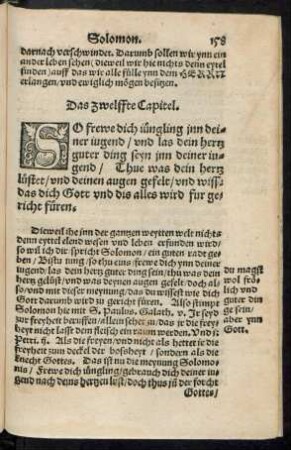 Solomon. 158
darnach verschwindet. Darumb sollen wir ynn ein
ander leben sehen / dieweil wir hie nichts denn eytel
finden / auff das wir alle fülle ynn dem HERRN
erlangen / und ewiglich mögen besitzen.
Das Zwelffte Capitel.
SO frewe dich iüngling jnn dei-
ner iugend / und las dein hertz
guter ding seyn jnn deiner iu-
gend / Thue was dein hertz
lüstet / und deinen augen gefelt / und wisse
das dich Gott und dis alles wird fur ge-
richt füren.
Dieweil ihr jnn der gantzen weytten welt nichts
denn eytel elend wesen und leben erfunden wird /
so wil ich dir spricht Solomon / ein guten radt ge-
ben / so thu eins frewe dich ynn deiner
iugend las dein hertz guter ding sein / thu was dein
hertz gelüst / und was deynen augen gefelt / doch al-
so / und mit dieser weyse / das du wissest wie dich
Gott darumb wird zu gericht füren. Also stimpt
Solomon hie mit S. Paulus. Galath. v. Ir seyd
zur freyheit beruffen / allein sehet zu / das jr die frey-
heyt nicht lasst dem fleisch ein raum werden. Und j.
Petri. ij. Als die freyen / und nicht als hettet ir die
freyheyt zum deckel der bossheyt / sondern als die
knechte Gottes. Das ist nu die meynung Solomo-
nis / Frewe dich iüngling / gebrauch dich deiner iu-
gend nach deins hertzen lust / doch thus jnn der forcht
Gottes /
du magst
wol frö-
lich und
guter din
ge sein /
aber ynn
Gott.